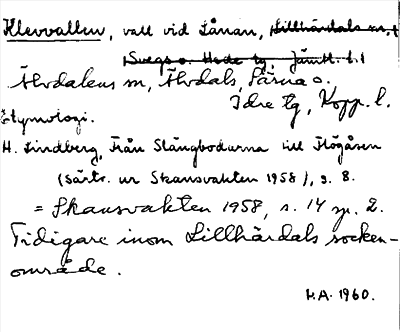 Klevvallen, vall vid Lånan, Lillhärdals sn,
Svegs o. Hede tg, Jämtl. l.
Älvdalens sn, Älvdals, Särna o.
Idre tg, Kopp. l.
Etymologi.
H. Lindberg, Från Slängbodarna till Högåsen
(Särtr. ur Skansvakten 1958), s. 8.
= Skansvakten 1958, s. 14 sp. 2.
Tidigare inom Lillhärdals socken-
område.
H.A. 1960.